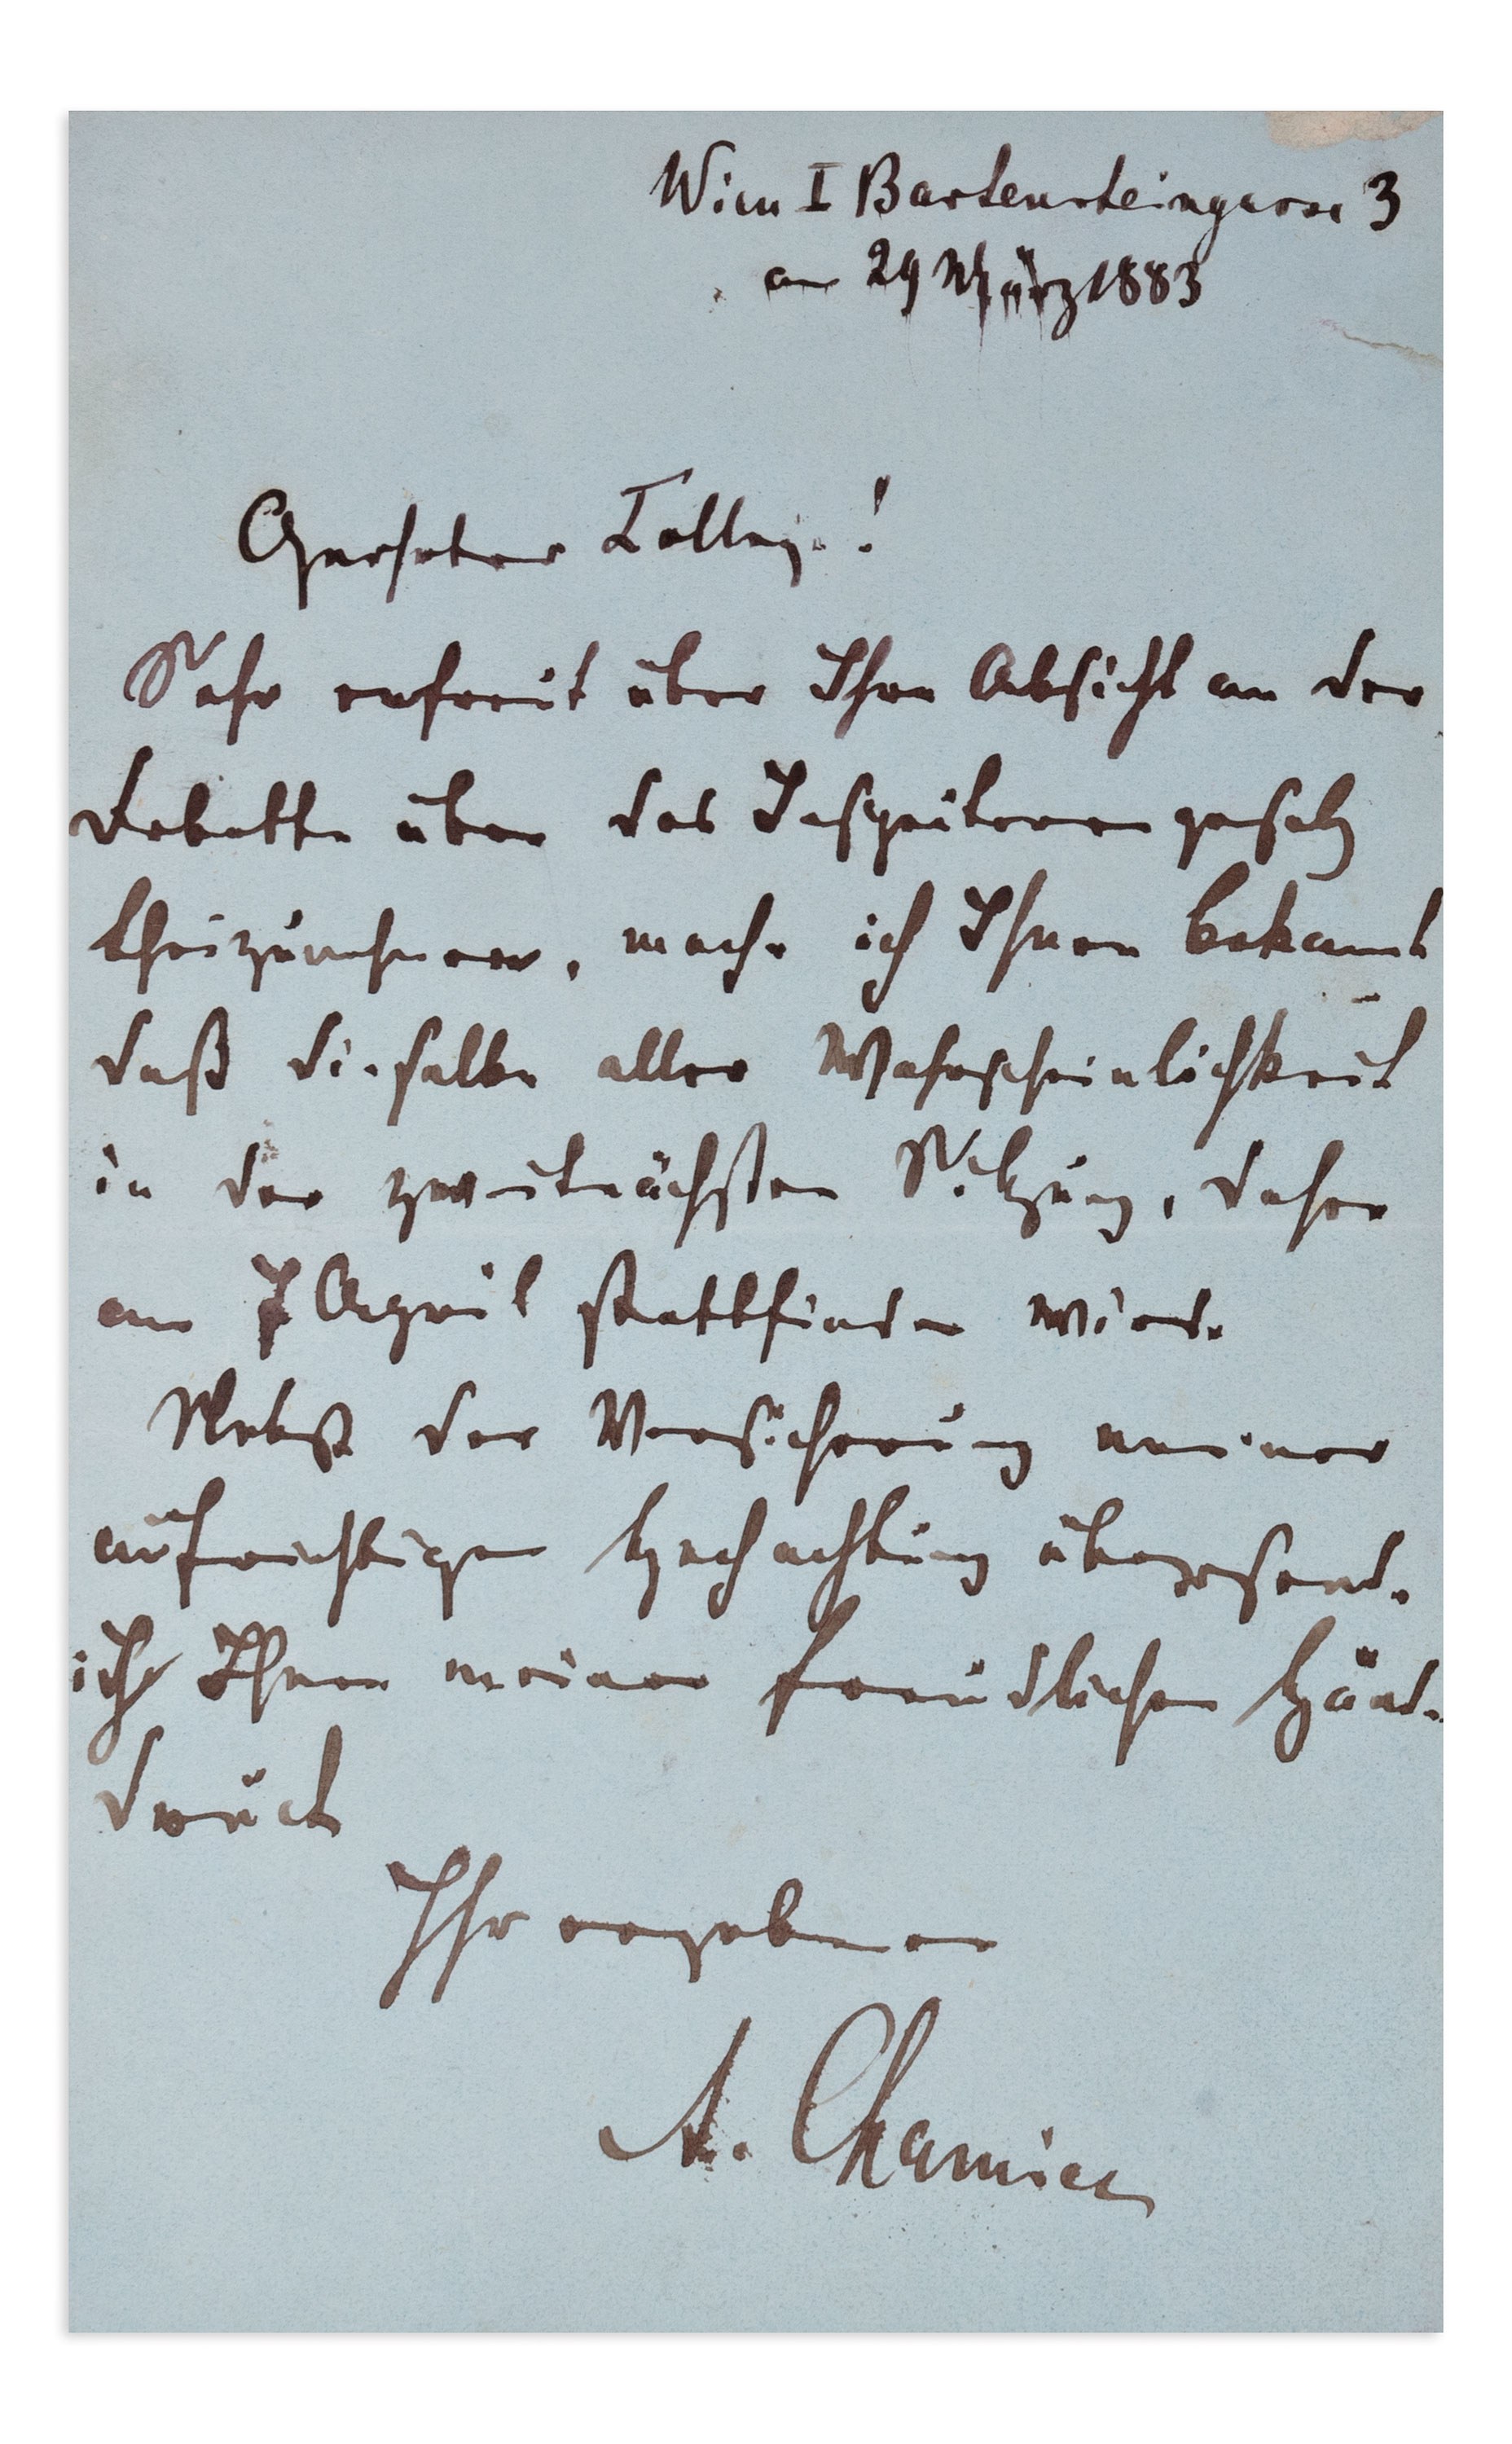 Wien I Bartensteingasse 3
am 29 März 1883
Geehrter College!
Sehr erfreut über Ihre Absicht an der
Debatte über das Inspectoren gesetz
theilzunehmen, mache ich Ihnen bekannt
daß dieselbe aller Wahrscheinlichkeit
in der zweitnächsten Sitzung, daher
am 7 April stattfinden wird.
Nebst der Versicherung meiner
aufrichtigen Hochachtung übersende
ich Ihnen meinen freundlichen Hände
druck
Ihr ergebener
A. Chamiec